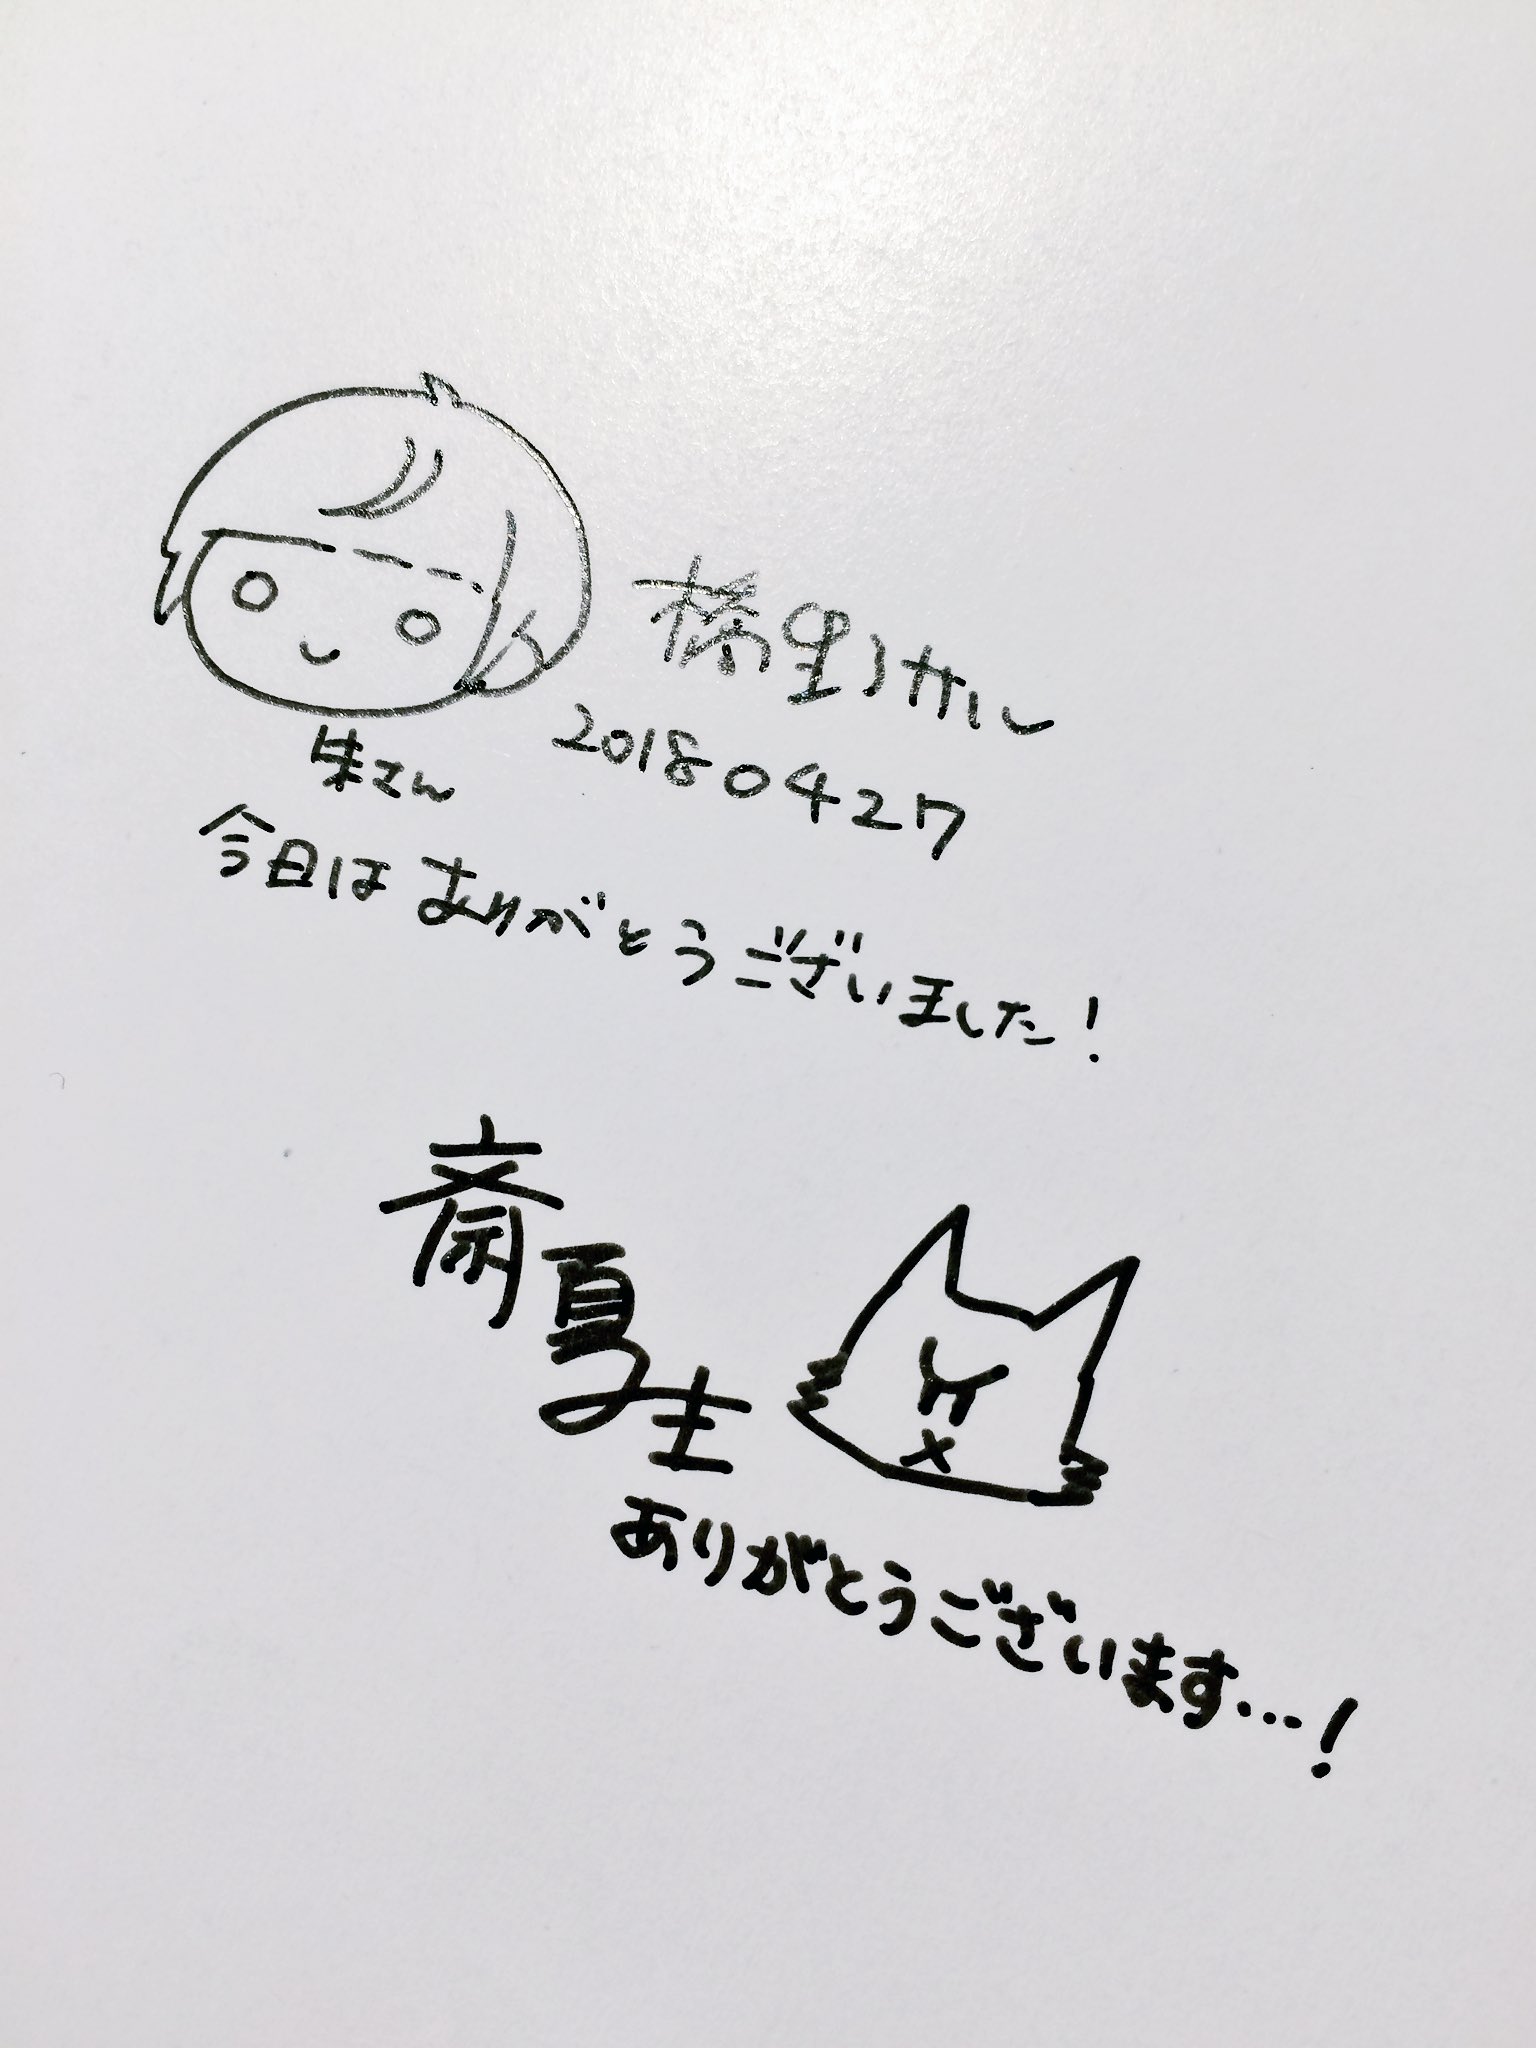 20180427
朱さん
今日は ありがとうございました!
斎夏生
ありがとうございます…!